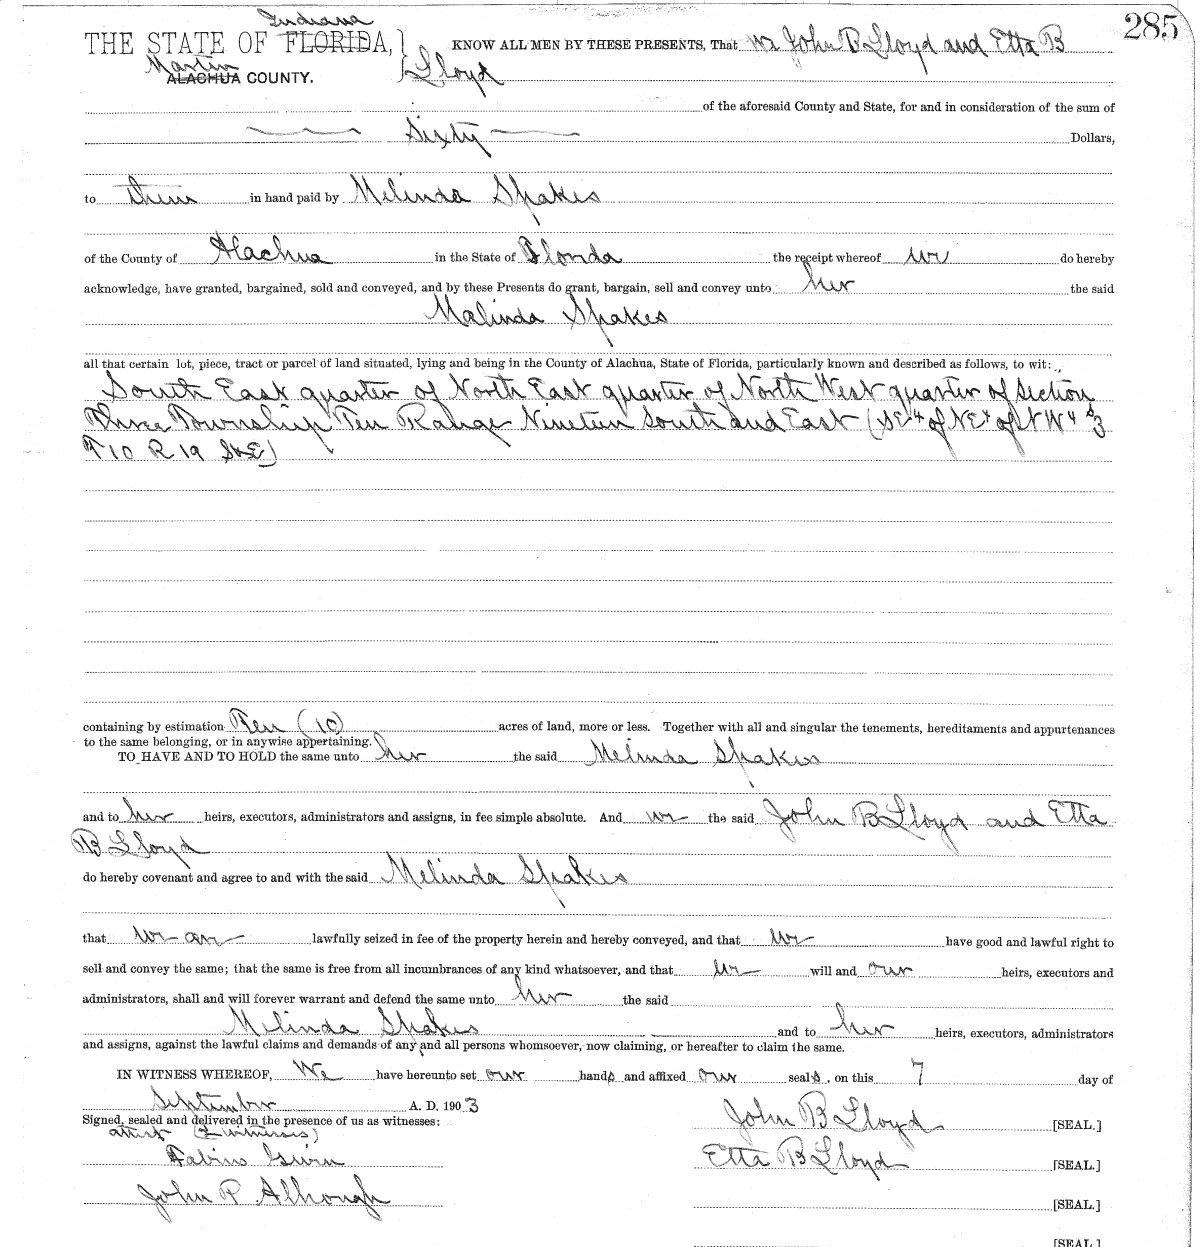 285
Indiana
THE STATE OF FLORIDA,} KNOW ALL MEN BY THESE PRESENTS, That we John B Lloyd and Etta B
Martin
ALACHUA COUNTY. } Lloyd
of the aforesaid County and State, for and in consideration of the sum of
Sixty Dollars,
to them in hand paid by Melinda Spakes
of the County of Alachua in the State of Florida the receipt whereof we do hereby
acknowledge, have granted, bargained, sold and conveyed, and by these Presents do grant, bargain, sell and convey unto her the said
Malinda Spakes
all that certain lot, piece, tract or parcel of land situated, lying and being in the County of Alachua, State of Florida, particularly known and described as follows, to wit:
South East quarter of North East quarter of North West quarter of Section
Three Township Ten Range Nineteen South and East (SE4 of NE4 of NW4 S3
T10 R19 S&E)
containing by estimation Ten (10) acres of land, more or less. Together with all and singular the tenements, hereditaments and appurtenances
to the same belonging, or in anywise appertaining.
TO HAVE AND TO HOLD the same unto her the said Melinda Spakes
and to her heirs, executors, administrators and assigns, in fee simple absolute. And we the said John B Lloyd and Etta
B Lloyd
do hereby covenant and agree to and with the said Melinda Spakes
that we are lawfully seized in fee of the property herein and hereby conveyed, and that we have good and lawful right to
sell and convey the same; that the same is free from all incumbrances of any kind whatsoever, and that we will and our heirs, executors and
administrators, shall and will forever warrant and defend the same unto her the said
Melinda Spakes and to her heirs, executors, administrators
and assigns, against the lawful claims and demands of any and all persons whomsoever, now claiming, or hereafter to claim the same.
IN WITNESS WHEREOF, We have hereunto set our hands and affixed our seals, on this 7 day of
September A. D. 1903
Signed, sealed and delivered in the presence of us as witnesses: John B Lloyd [SEAL.]
attest (2 witnesses)
Etta B Lloyd [SEAL.]
John P [SEAL.]
[SEAL.]